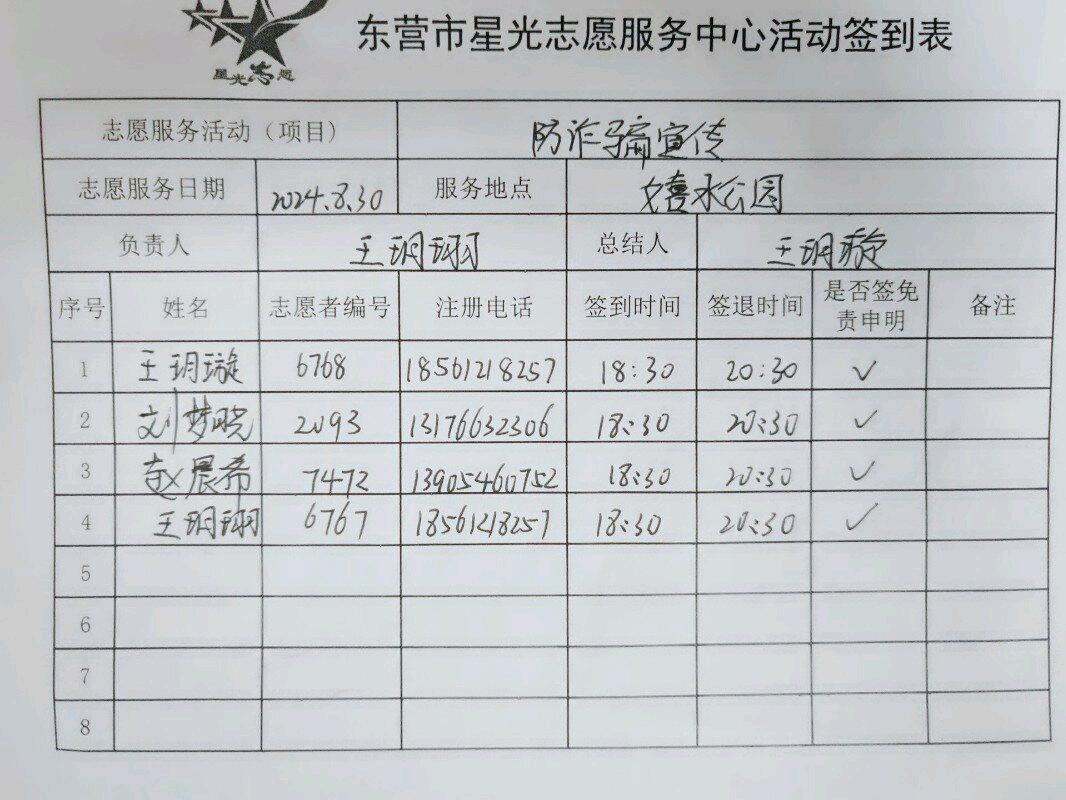 星光志愿
东营市星光志愿服务中心活动签到表
志愿服务活动（项目） 防诈骗宣传
志愿服务日期 2024.8.30 服务地点 嬉水公园
负责人 王玥珝 总结人 王玥璇
序号 姓名 志愿者编号 注册电话 签到时间 签退时间 是否签免责申明 备注
1 王玥璇 6768 18561218257 18:30 20:30 ✓
2 刘梦晓 2093 13176632306 18:30 20:30 ✓
3 赵晨希 7472 13905460752 18:30 20:30 ✓
4 王玥珝 6767 18561218257 18:30 20:30 ✓
5
6
7
8